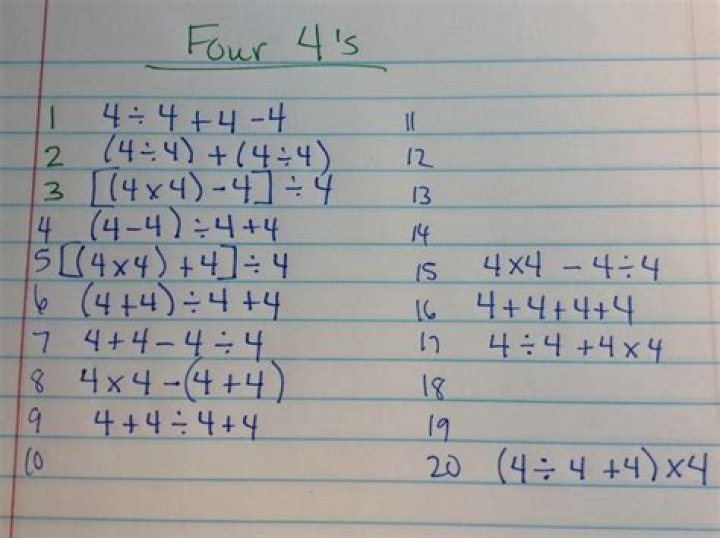 Four 4's
1 4÷4+4-4
2 (4÷4)+(4÷4)
3 [(4×4)-4]÷4
4 (4-4)÷4+4
5 [(4×4)+4]÷4
6 (4+4)÷4+4
7 4+4-4÷4
8 4×4-(4+4)
9 4+4÷4+4
10
11
12
13
14
15 4×4-4÷4
16 4+4+4+4
17 4÷4+4×4
18
19
20 (4÷4+4)×4